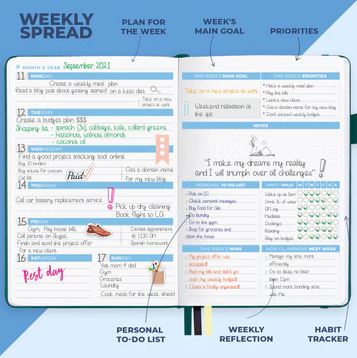 WEEKLY
SPREAD
PLAN FOR
THE WEEK
WEEK'S
MAIN GOAL
PRIORITIES
MONTH & YEAR September 2021
11 MONDAY
Create a weekly meal plan
Read a blog post about getting started on a keto diet
Take on a new
project at work
12 TUESDAY
Create a budget plan $$$
Shopping list - spinach (3x), cabbage, kale, collard greens,
- hazelnuts, walnuts, almonds
- coconut oil
13 WEDNESDAY
Find a good project tracking tool online
Buy 20 birdies
Paid
Get a domain name
for my new blog
14 THURSDAY
Call car battery replacement service
Pick up dry cleaning
Book flights to L.A.
15 FRIDAY
Gym, Pay house bills
Call parents on Skype
Finish and send the project offer
for a new client
Dentist appointment
@ 12:30 AM
Spanish homework
16 SATURDAY
Rest day
17 SUNDAY
Visit mom & dad
Gym
Laundry
Cook meals for the week ahead
THIS WEEK'S MAIN GOAL
Take on a new project at work
Weekend relaxation at
the spa
THIS WEEK'S PRIORITIES
Make a weekly meal plan
Pay the bills
Land a new client
Get a domain name for my new blog
NOTES
"I make my dreams my reality
and I will triumph over all challenges"
PERSONAL TO-DO LIST
Check personal messages
Buy food for cat
Do laundry
Go to the gym
Shop for groceries and
clean the house
HABITS / GOALS M T W T F S S
Gym
Meditate
Duolingo
Reading
THIS WEEK'S WINS
My project offer was
accepted!
Paid my bills and didn't go
over my weekly budget!
HOW I'LL IMPROVE NEXT WEEK
Manage my time more
efficiently
Go to sleep no later
than
Spend more bonding time
with
PERSONAL
TO-DO LIST
WEEKLY
REFLECTION
HABIT
TRACKER